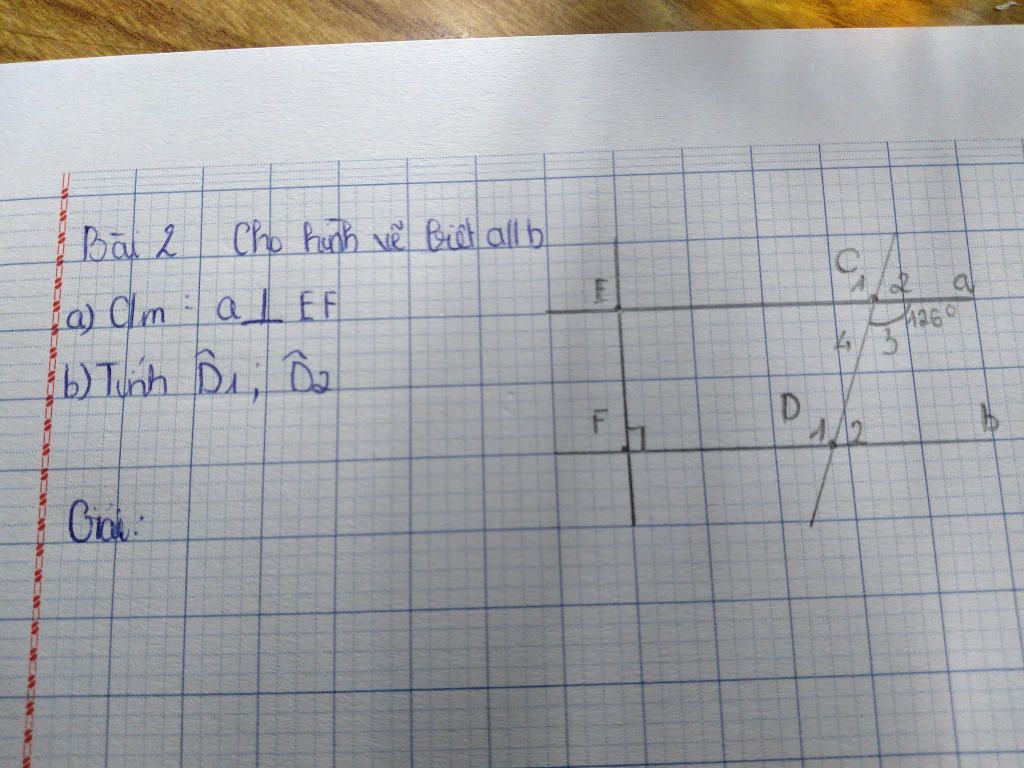 Bài 2 Cho hình vẽ biết a//b
a) C/m : a ⊥ EF
b) Tính D̂1; D̂2
Giải:
C
1 2 a
E
126°
4 3
D
F 1 2 b